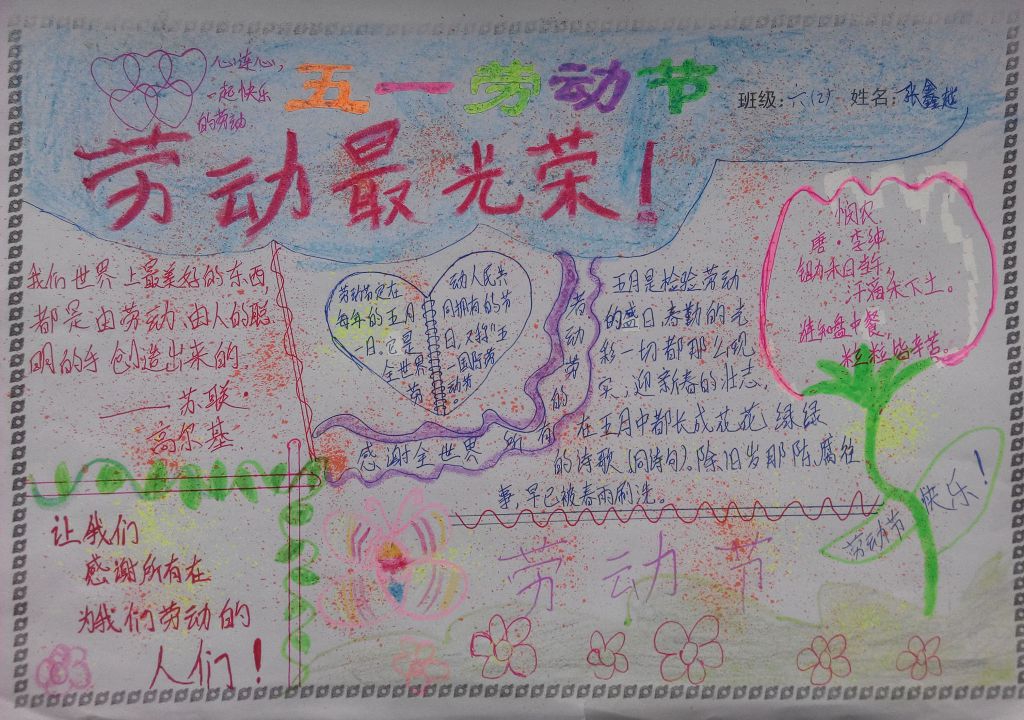 心连心,
一起快乐
的劳动.
五一劳动节
班级:六(2) 姓名:张鑫越
劳动最光荣!
我们世界上最美好的东西,
都是由劳动、由人的聪
明的手创造出来的.
——苏联·
高尔基
劳动节定在
每年的五月
一日。它是
全世界
劳
动人民共
同拥有的节
日,又称“五
一国际劳
动节。
感谢全世界所有的劳动者
五月是检验劳动
的盛日,春勤的光
彩一切都那么现
实,迎新春的壮志,
在五月中都长成花花,绿绿
的诗歌(同诗句),除旧岁那陈腐往
事,早已被春雨刷洗。
悯农
唐·李绅
锄禾日当午,
汗滴禾下土。
谁知盘中餐,
粒粒皆辛苦。
劳动节快乐!
让我们
感谢所有在
为我们劳动的
人们!
劳动节